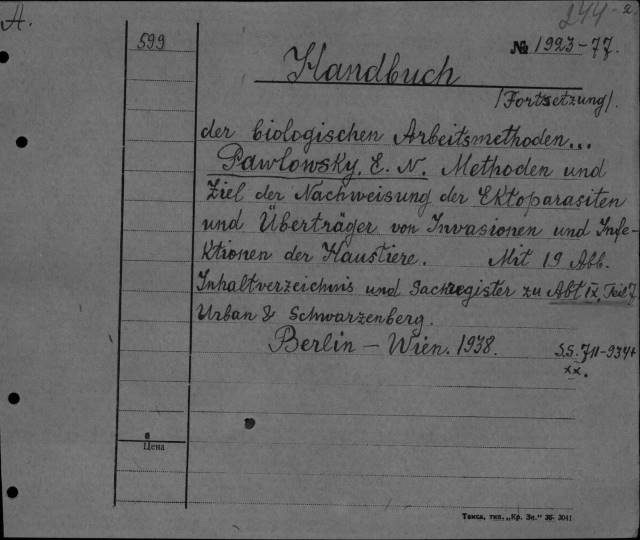 A.
244-2
599
№ 1923-77.
Handbuch
/Fortsetzung/.
der biologischen Arbeitsmethoden...
Pawlowsky, E. N. Methoden und
Ziel der Nachweisung der Ektoparasiten
und Überträger von Invasionen und Infe-
ktionen der Haustiere. Mit 19 Abb.
Inhaltverzeichnis und Sachregister zu Abt IX, Teil 7
Urban & Schwarzenberg.
Berlin — Wien. 1938. S.S. 711-934+
xx.
Цена
Такса, тип. „Кр. Зн." 36- 3041